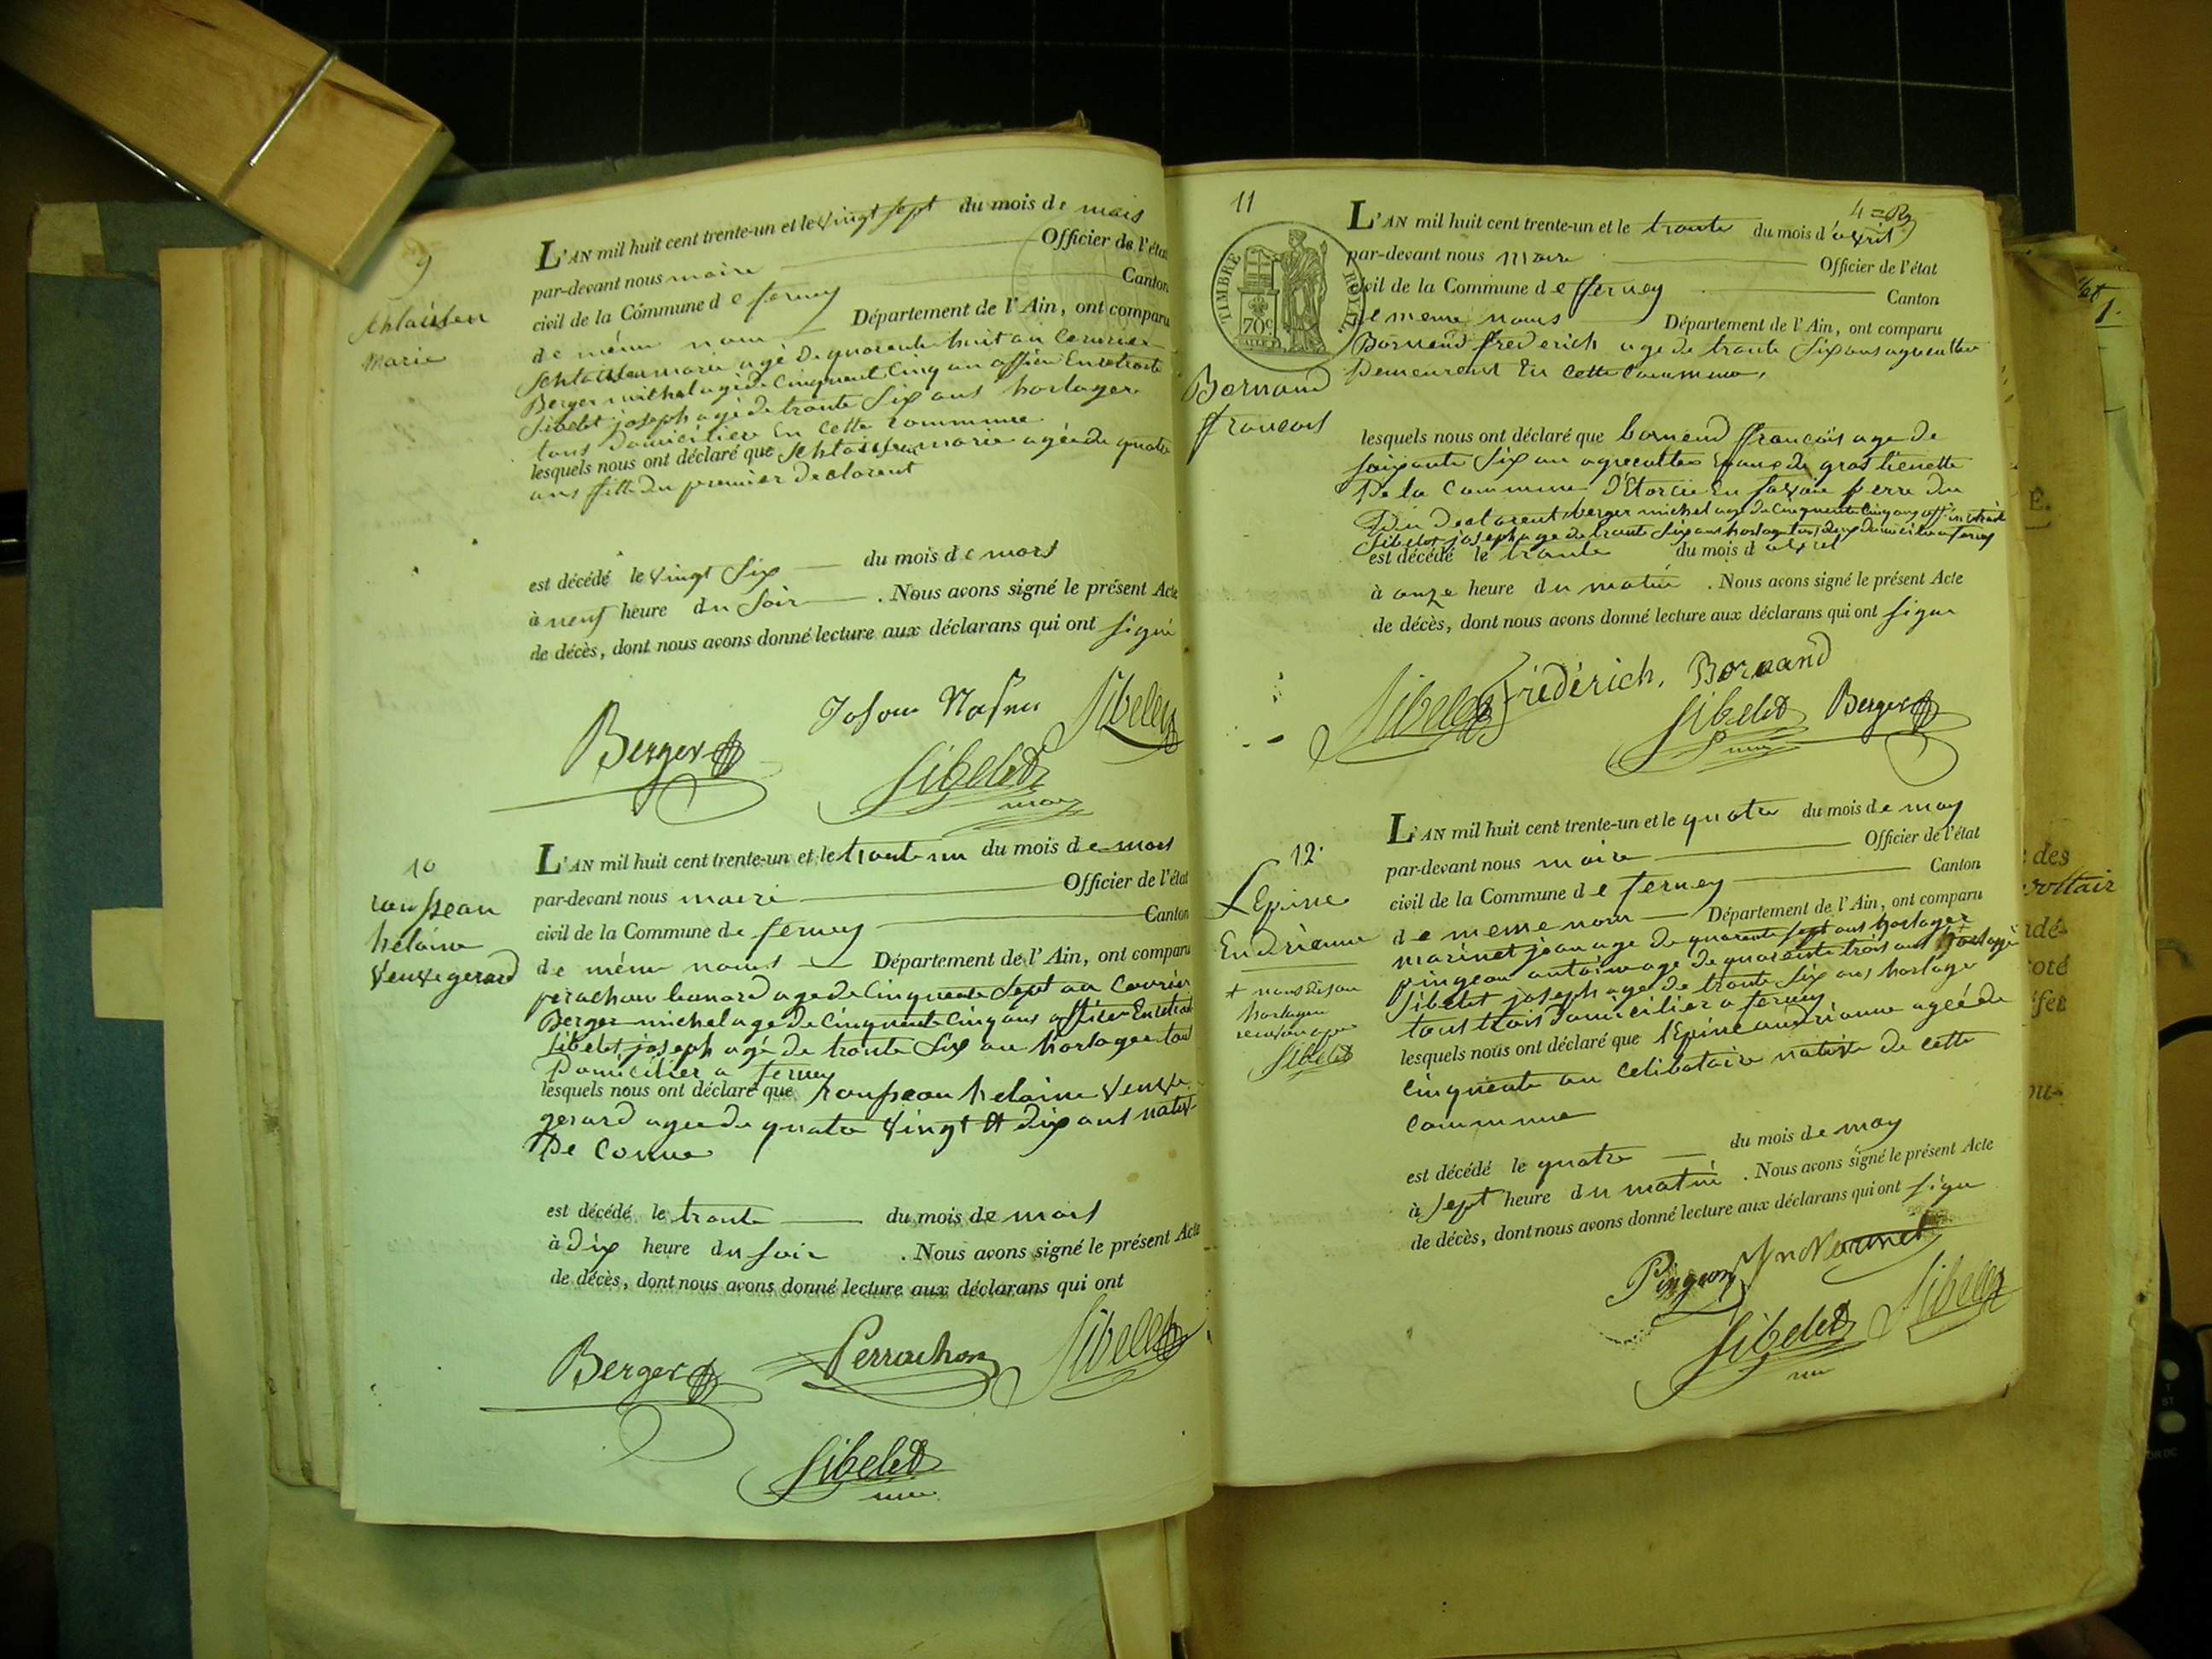 9
Schlaissen
Marie
L'AN mil huit cent trente-un et le vingt sept du mois de mars
par-devant nous maire Officier de l'état
civil de la Commune de ferney Canton
de même nom Département de l'Ain, ont comparu
Schlaissen marie agé de quarente huit an
Berger michel agé de Cinquent Cinq an officier En retraite
Sibelet joseph agé de trante Six ans horloger
tous domicilier En Cette Commune
lesquels nous ont déclaré que Schlaissen marie agée de quatre
ans fille du premier declarent
est décédé le vingt Six du mois de mars
à neuf heure du Soir . Nous avons signé le présent Acte
de décès, dont nous avons donné lecture aux déclarans qui ont signé
Berger Sibelet
Sibelet
maire
10
rousseau
helaine
Veuve gerard
L'AN mil huit cent trente-un et le trante un du mois de mars
par-devant nous maire Officier de l'état
civil de la Commune de ferney Canton
de même noms Département de l'Ain, ont comparu
perachon leonard age de Cinquente Sept an
Berger michel age de Cinquente Cinq ans officier En retrait
Sibelet joseph agé de trante Six an horloger tous
Domicilier a ferney
lesquels nous ont déclaré que rousseau helaine Veuve
gerard agée de quatre Vingt et dix ans native
De
est décédé le trante du mois de mars
à dix heure du soir . Nous avons signé le présent Acte
de décès, dont nous avons donné lecture aux déclarans qui ont
Berger Perrachon Sibelet
Sibelet
11
4
TIMBRE ROYAL
70c
Bornand
francois
L'AN mil huit cent trente-un et le trante du mois d'avril
par-devant nous maire Officier de l'état
civil de la Commune de ferney Canton
de meme noms Département de l'Ain, ont comparu
Bornand frederich age de trante Six ans agriculteur
Demeurent En Cette Commune,
lesquels nous ont déclaré que bornand francois age de
soixante Six an agriculteur
De la Commune En Savoie perre du
Declarent berger michel age de Cinquente Cinq ans
Sibelet joseph age de trante Six ans horloger
est décédé le trante du mois d avril
à onze heure du matin . Nous avons signé le présent Acte
de décès, dont nous avons donné lecture aux déclarans qui ont signe
Sibelet Frédérich, Bornand
Sibelet Berger
12.
Lepine
Endrienne
+ nous dison
horloger
Sibelet
L'AN mil huit cent trente-un et le quatre du mois de may
par-devant nous maire Officier de l'état
civil de la Commune de ferney Canton
de meme nom Département de l'Ain, ont comparu
marinet jean age de quarente sept ans horloger
pingeon antoine age de quarente trois ans horloger
Sibelet joseph age de trante Six ans horloger
tous trois domicilier a ferney
lesquels nous ont déclaré que lepine andrienne agée de
Cinquente an Celibataire native de cette
Commune
est décédé le quatre du mois de may
à sept heure du matin . Nous avons signé le présent Acte
de décès, dont nous avons donné lecture aux déclarans qui ont signe
Pingeon
Sibelet Sibelet